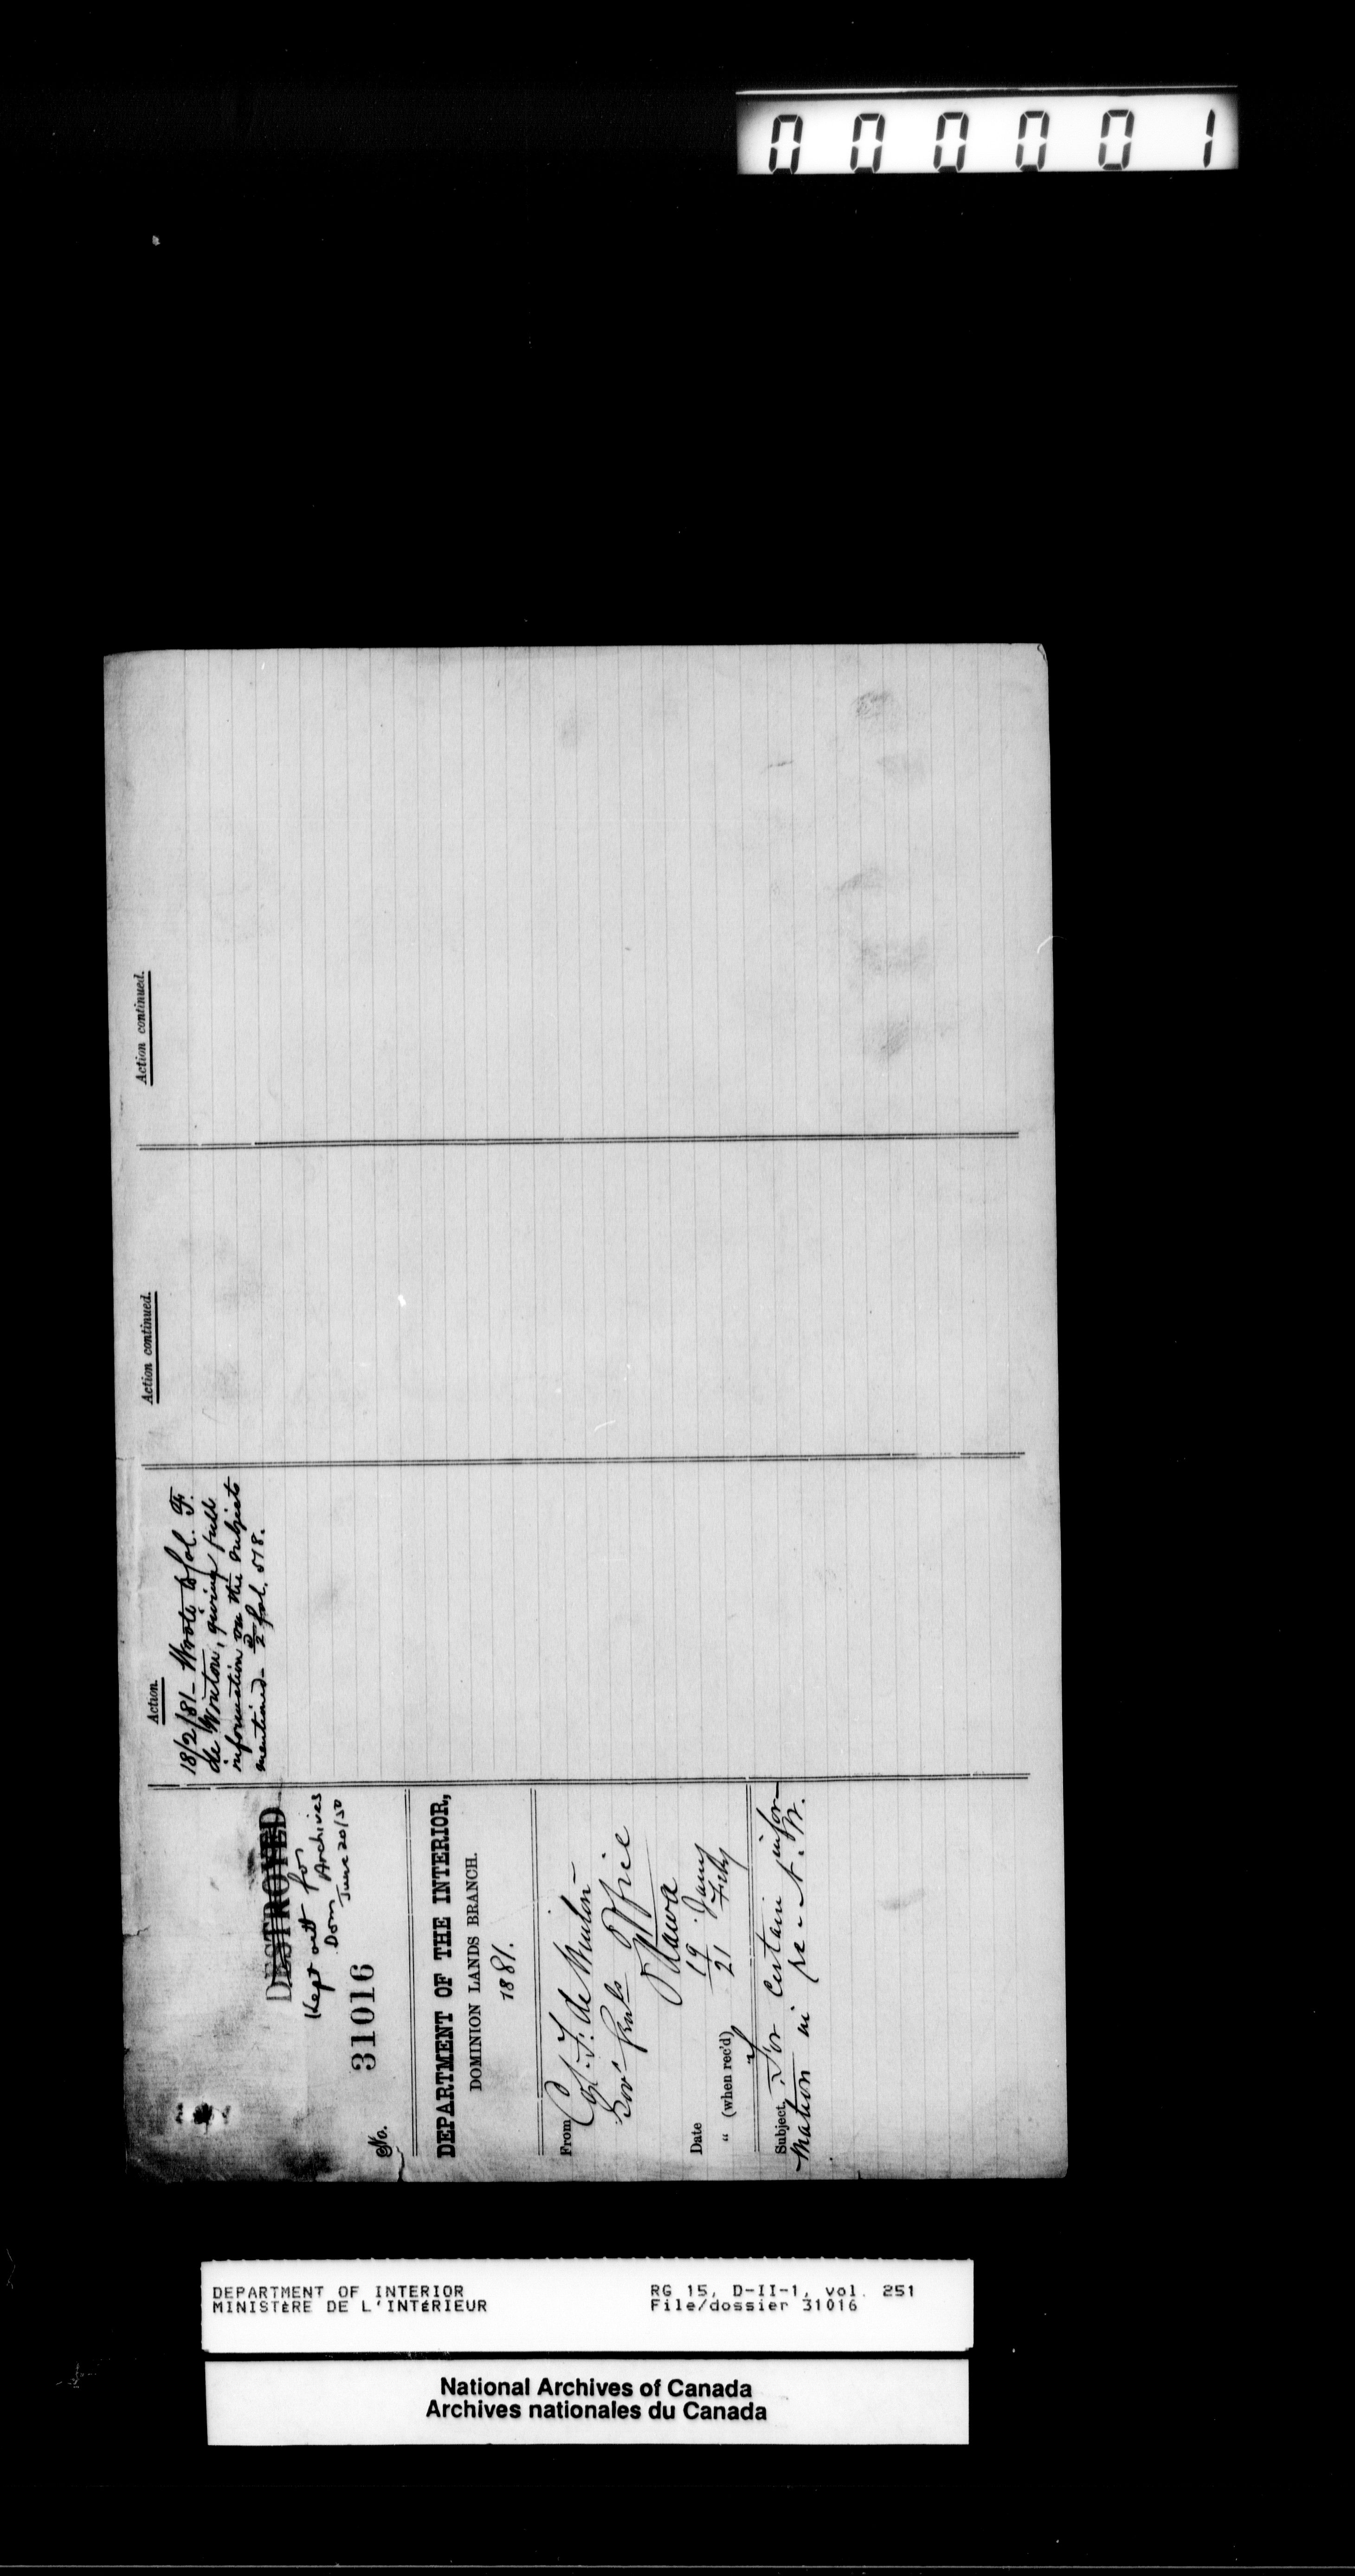 000001
DESTROYED
Kept out for
Dom Archives
June 20/30
No. 31016
DEPARTMENT OF THE INTERIOR,
DOMINION LANDS BRANCH.
1881.
From Col. F. de Winton
Office
Ottawa
Date 19 Jany
" (when rec'd) 21 Feby
Subject, For certain infor-
mation in re N. W.
Action.
18/2/81 - Wrote Col. F.
de Winton, giving full
information on the subjects
mentioned - fol. 578.
Action continued.
Action continued.
DEPARTMENT OF INTERIOR RG 15, D-II-1, vol. 251
MINISTÈRE DE L'INTÉRIEUR File/dossier 31016
National Archives of Canada
Archives nationales du Canada